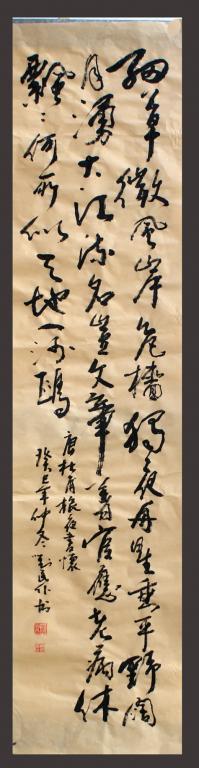 細草微風岸危檣獨夜舟星垂平野闊
月湧大江流名豈文章著官應老病休
飄〻何所似天地一沙鷗
唐杜甫旅夜書懷
癸巳年仲冬劉